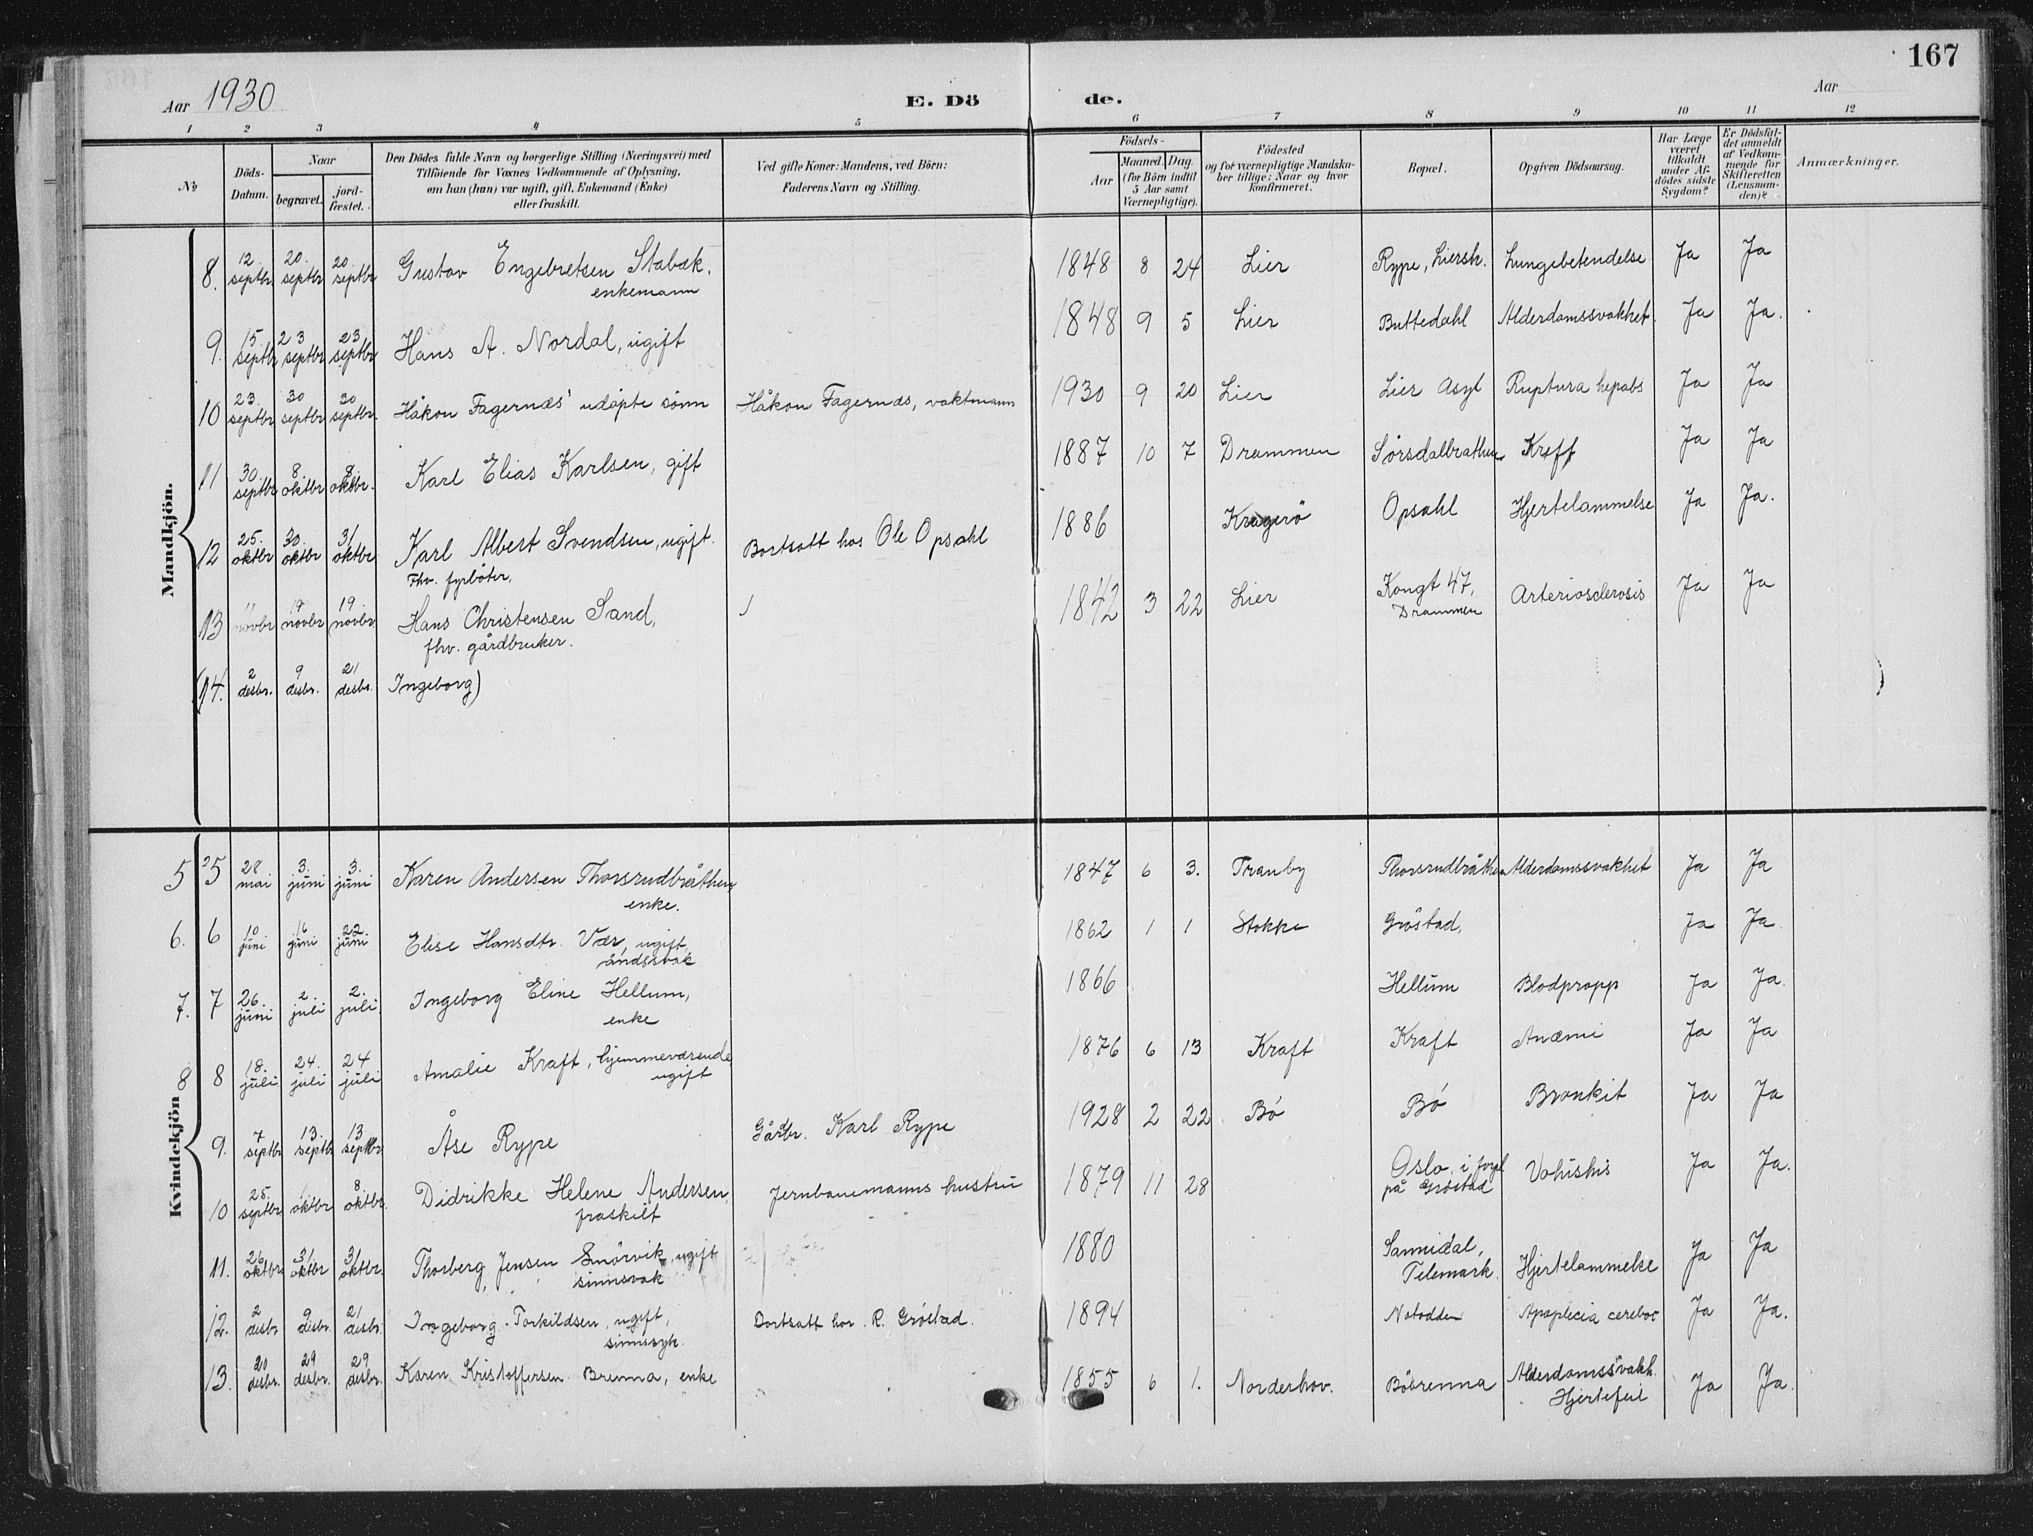 167
Aar 1930
E. Dö de.
Aar
1 2 3 4 5 6 7 8 9 10 11 12
No
Döds-Datum.
Naar
begravet.
jord-fæstet.
Den Dödes fulde Navn og borgerlige Stilling (Næringsvei) med
Tilföiende for Voxnes Vedkommende af Oplysning,
om hun (han) var ugift, gift, Enkemand (Enke)
eller fraskilt.
Ved gifte Koner: Mandens, ved Börn:
Faderens Navn og Stilling.
Födsels-
Aar
Maaned. Dag.
(for Börn indtil
5 Aar samt
Værnepligtige).
Födested
og for værnepligtige Mandska-
ber tillige: Naar og hvor
konfirmeret.
Bopæl.
Opgiven Dödsaarsag.
Har Læge
været
tilkaldt
under Af-
dödes sidste
Sygdom?
Er Dödsfal-
det anmeldt
af Vedkom-
mende for
Skifteretten
(Lensman-
den)?
Anmærkninger.
Mandkjön.
8. 12. septbr. 20. septbr 20. septbr Gustav Engebretsen Stabæk, enkemann 1848 8 24 Lier Rype, Liersk. Lungebetendelse Ja Ja
9. 15. septbr 23 septbr 23. septbr Hans A. Nordal, ugift 1848 9 5 Lier Buttedahl Alderdomssvakhet. Ja Ja.
10 23. septbr 30 septbr 30 septbr. Håkon Fagernæs' udøpte sønn Håkon Fagernæs, vaktmann 1930 9 20 Lier Lier Asyl Ruptura hepatis Ja Ja
11 30. septbr 8. oktbr 8. oktbr. Karl Elias Karlsen, gift 1887 10 7 Drammen Sørsdalbråthen Kreft Ja Ja
12 25. oktbr 30. oktbr 31 oktbr. Karl Albert Svendsen, ugift. Fhv. fyrbøter. Bortsatt hos Ole Opsahl 1886 Kragerø Opsahl Hjertelammelse Ja Ja.
13 11 novbr 19 novbr 19. novbr Hans Christensen Sand, fhv. gårdbruker. 1842 3 22 Lier Kongt 47, Drammen Arteriosclerosis Ja Ja
(14. 2 desbr. 9 desbr. 21 desbr. Ingeborg)
Kvindekjön
5 5 28 mai 3. juni 3. juni Karen Andersen Thorsrudbråthen enke. 1847 6 3. Tranby Thorsrudbråthen Alderdomssvakhet Ja Ja
6. 6 10 juni 16 juni 22 juni Elise Hansdtr. Vær, ugift, åndssvak 1862 1 1 Stokke Grøstad, Ja Ja.
7. 7 26. juni 2. juli 2. juli. Ingeborg Eline Hellum, enke 1866 Hellum Blodpropp Ja Ja.
8 8 18. juli 24. juli 24 juli Amalie Kraft, hjemmeværende ugift 1876 6 13 Kraft Kraft Anæmi Ja Ja
9. 7 septbr 13. septbr 13 septbr Åse Rype Gårbr. Karl Rype 1928 2 22 Bø Bø Bronkit Ja Ja
10 25 septbr oktbr 8 oktbr. Didrikke Helene Andersen, fraskilt Jernbanemanns hustru 1879 11 28 Oslo, i forpl på Grøstad Ja Ja.
11. 26 oktbr 31 oktbr 31 oktbr. Thorberg Jensen Smørvik, ugift sinnsvak 1880 Sannidal, Telemark. Hjertelammelse Ja Ja
12. 2 desbr 9 desbr. 21 desbr. Ingeborg Torkildsen, ugift, sinnssyk. Bortsatt hos R. Grøstad. 1894 Notodden Apoplecia cerebr Ja Ja.
13. 20 desbr. 29 desbr. 29 desbr. Karen Kristoffersen Brenna, enke 1855 6 1. Norderhov. Bøbrenna Alderdomssvakh. Hjertefeil Ja Ja.